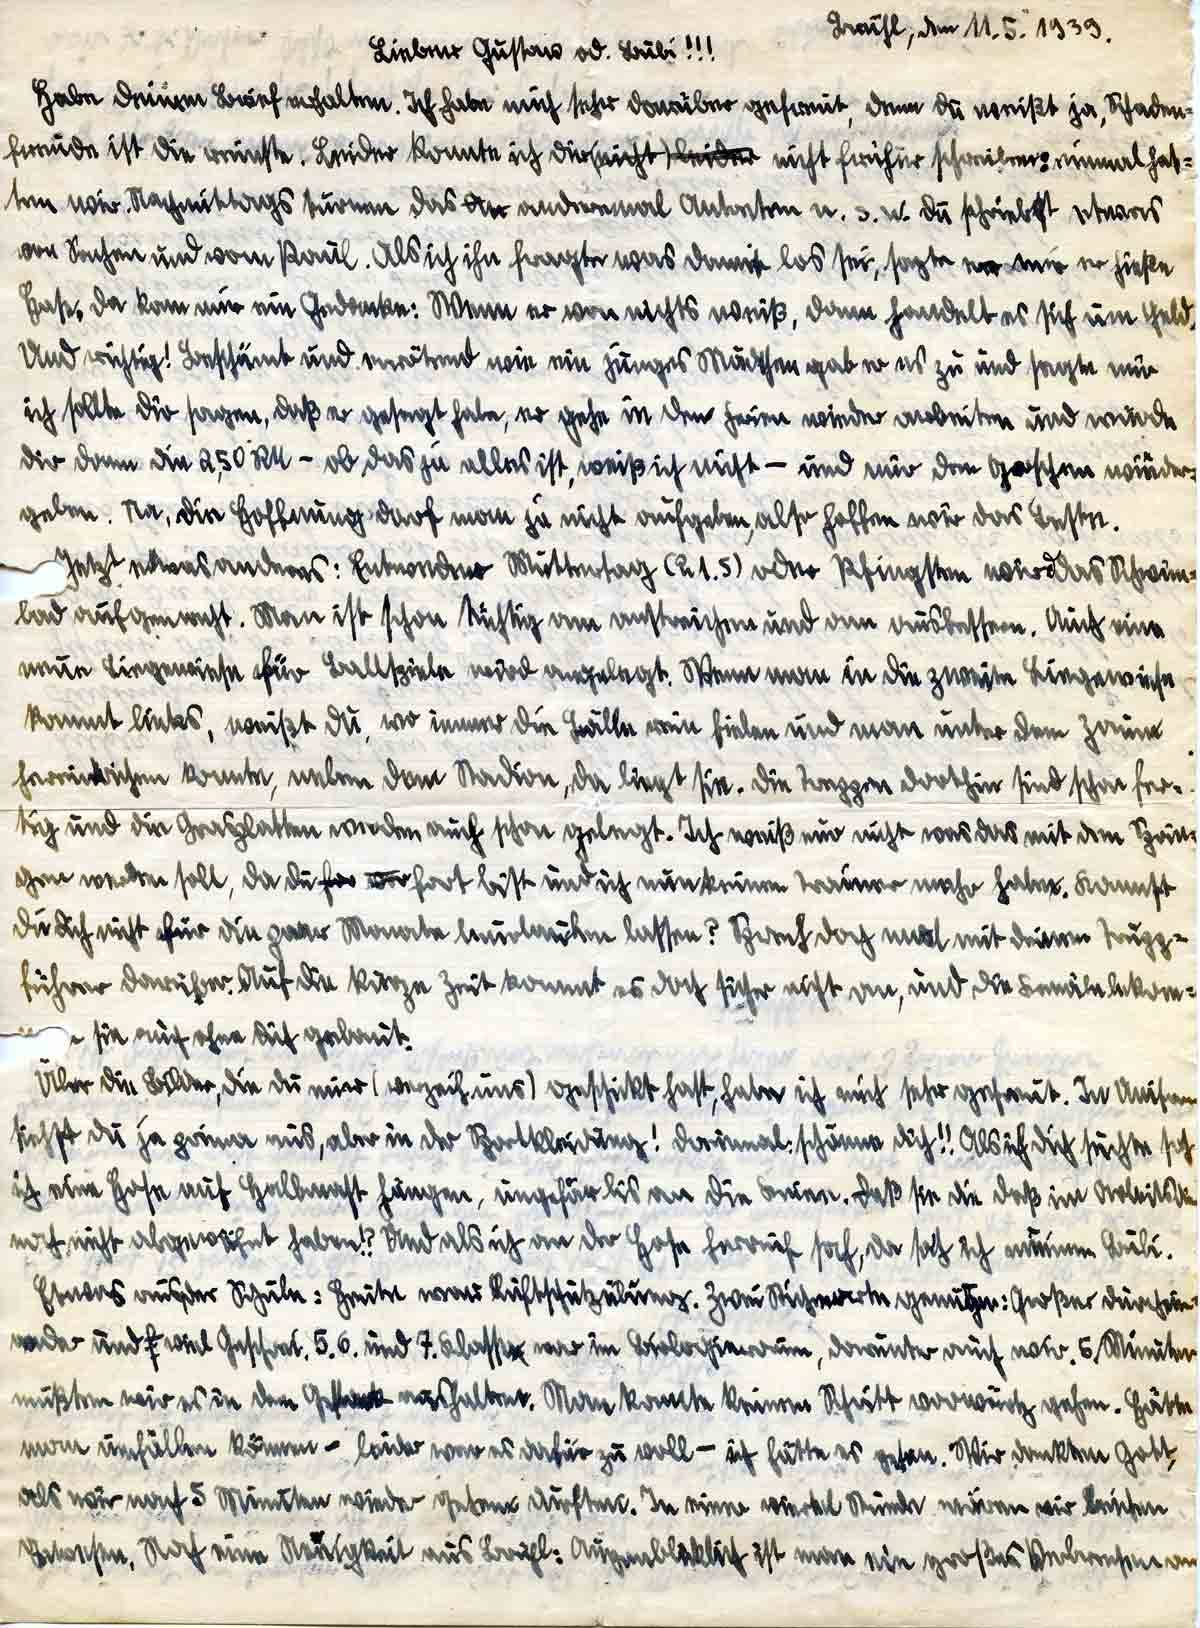 Brühl, den 11.5. 1939.
Lieber Gustav od. Bubi!!!
Habe deinen Brief erhalten. Ich habe mich sehr darüber gefreut, denn du weißt ja, Schaden-
freude ist die reinste. Leider konnte ich dir (nicht) leider nicht früher schreiben: einmal hat-
ten wir Nachmittags turnen das anderemal Antreten u. s. w. du schriebst etwas
von Sachen und vom Paul. Als ich ihn fragte was damit los sei, sagte er mir er hieße
Hase, da kam mir ein Gedanke: Wenn er von nichts weiß, dann handelt es sich um Geld.
Und richtig! Beschämt und errötend wie ein junges Mädchen gab er es zu und sagte mir
ich sollte dir sagen, daß er gesagt habe, er gehe in den Ferien wieder arbeiten und würde
dir dann die 2,50 RM – ob das ja alles ist, weiß ich nicht – und mir den Groschen wieder-
geben. Na, die Hoffnung darf man ja nicht aufgeben, also hoffen wir das Beste.
Jetzt etwas anderes: Entweder Muttertag (21.5) oder Pfingsten wird das Schwim-
bad aufgemacht. Man ist schon tüchtig am anstreichen und am ausbessern. Auch eine
neue Liegewiese für Ballspiele wird angelegt. Wenn man in die zweite Liegewiese
kommt links, weißt du, wo immer die Bälle rein fielen und man unter dem Zaun
hereinkriechen konnte, neben dem Stadion, da liegt sie. die Treppen dorthin sind schon fer-
tig und die Grasplatten werden auch schon gelegt. Ich weiß nur nicht was das mit dem Sprin-
gen werden soll, da du fort bist und ich nun keinen Trainer mehr habe. Kannst
du dich nicht für die paar Monate beurlauben lassen? Sprech doch mal mit deinem Trupp-
führer darüber. Auf die kurze Zeit kommt es doch sicher nicht an, und die Kanäle bekom-
sie auch ohne dich gebaut.
Über die Bilder, die du mir (verzeih, uns) geschickt hast, habe ich mich sehr gefreut. In Uniform
siehst du ja prima aus, aber in der Sportkleidung! dreimal: schäme dich!! Als ich dich suchte sah
ich eine Hose auf Halbmast hängen, ungefär bis an die Knien. Daß sie dir das im Arbeitsdie
noch nicht abgewöhnt haben!? Und als ich an der Hose herauf sah, da sah ich meinen Bubi.
Etwas aus der Schule: Heute war Luftschutzübung. Zwei Stichworte genügen: Großer durchein-
ander und viel Geschrei. 5. 6. und 7. Klasse war im Biologieraum, darunter auch wir. 5 Minuten
mußten wir es in dem Gestank aushalten. Man konnte keinen Schritt vorwärts gehen. Hätte
man umfallen können – leider war es dafür zu voll – ich hätte es getan. Wir dankten Gott,
als wir nach 5 Minuten wieder gehen durften. In einer viertel Stunde wären wir Leichen
gewesen. Noch eine Neuigkeit aus Brühl: Augenblicklich ist man ein großes Verbrechen am